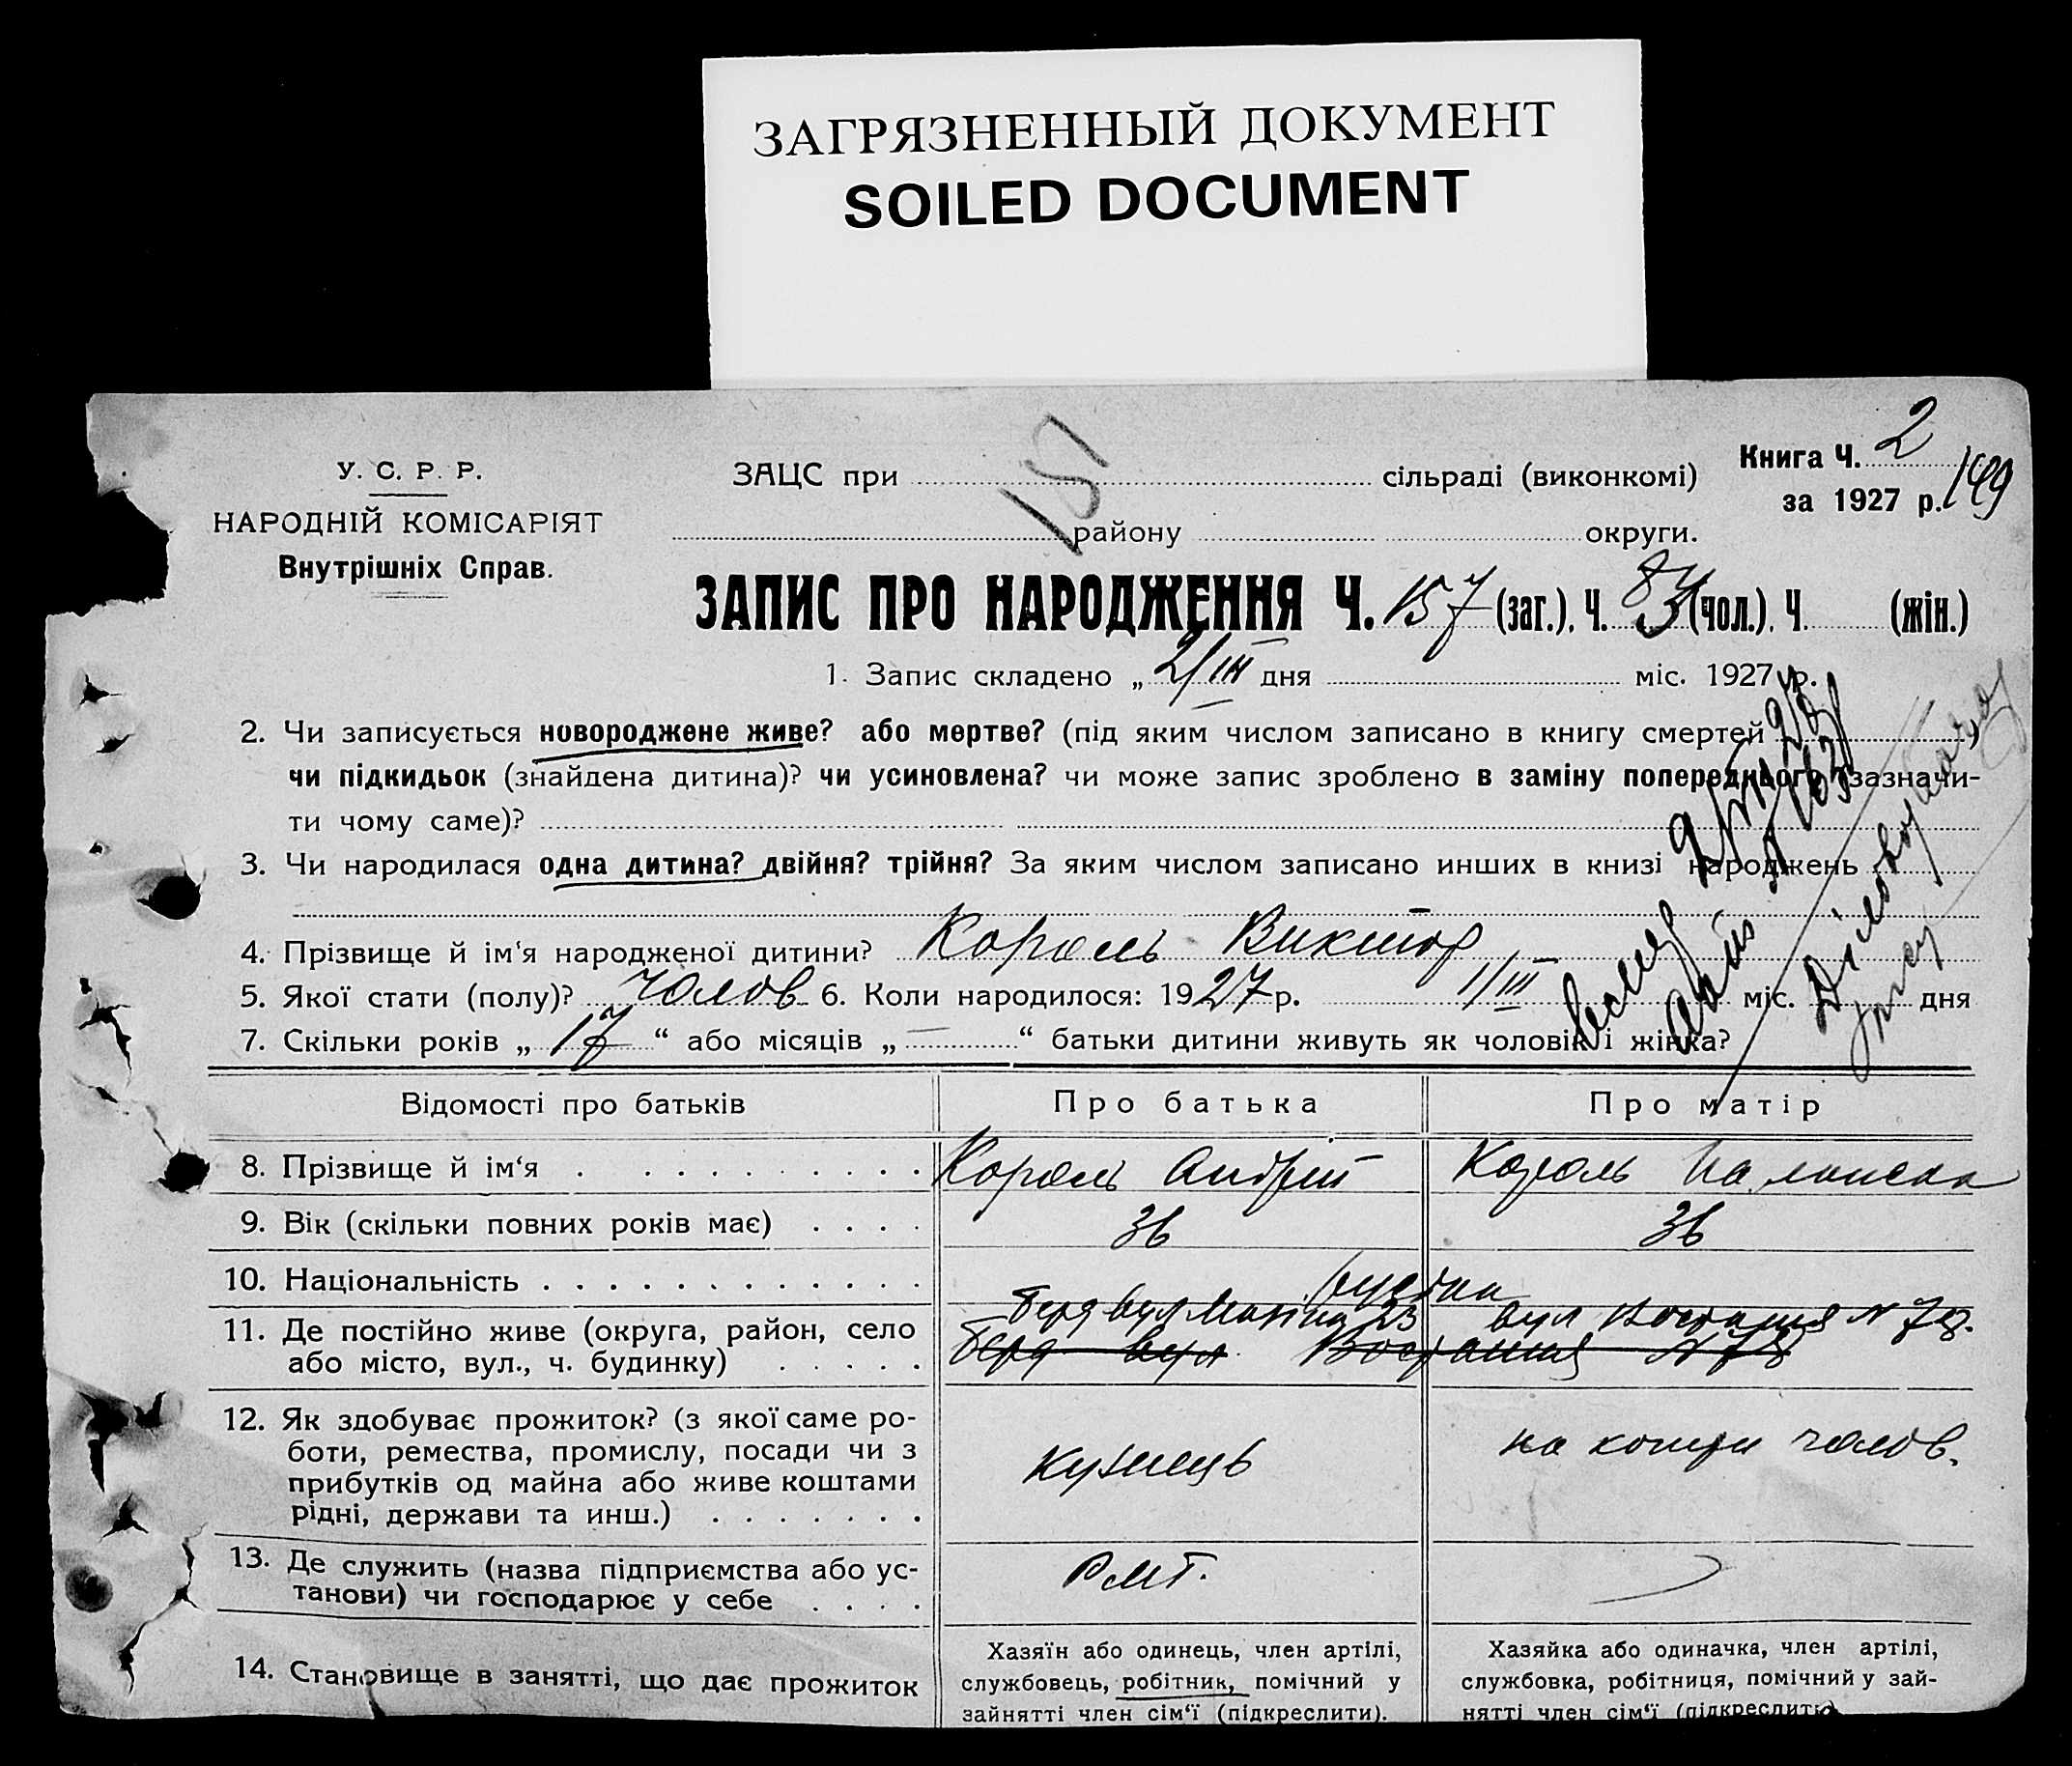 ЗАГРЯЗНЕННЫЙ ДОКУМЕНТ
SOILED DOCUMENT
У. С. Р. Р.
НАРОДНІЙ КОМІСАРІЯТ
Внутрішніх Справ.
151
ЗАЦС при сільраді (виконкомі)
району округи.
Книга Ч. 2
за 1927 р. 149
ЗАПИС ПРО НАРОДЖЕННЯ Ч. 157 (заг.). Ч. 83 (чол.). Ч. (жін.)
1. Запис складено „ 2/III дня міс. 1927 р.
2. Чи записується новороджене живе? або мертве? (під яким числом записано в книгу смертей )
чи підкидьок (знайдена дитина)? чи усиновлена? чи може запис зроблено в заміну попереднього (зазначи-
ти чому саме)?
3. Чи народилася одна дитина? двійня? трійня? За яким числом записано инших в книзі народжень
4. Прізвище й ім‘я народженої дитини? Король Виктор
5. Якої стати (полу)? чолов 6. Коли народилося: 1927 р. 1/III міс. дня
7. Скільки років „ 17 “ або місяців „ — “ батьки дитини живуть як чоловік і жінка?
Відомості про батьків Про батька Про матір
8. Прізвище й ім‘я Король Андрій Король
9. Вік (скільки повних років має) 36 36
10. Національність
11. Де постійно живе (округа, район, село
або місто, вул., ч. будинку)
Берд вул 23 вул Востания N 78.
Берд вул Востания N 78
12. Як здобуває прожиток? (з якої саме ро-
боти, ремества, промислу, посади чи з
прибутків од майна або живе коштами
рідні, держави та инш.)
кузнець
на кошти чолов.
13. Де служить (назва підприємства або ус-
танови) чи господарює у себе
РМТ.
14. Становище в занятті, що дає прожиток
Хазяїн або одинець, член артілі,
службовець, робітник, помічний у
зайнятті член сім‘ї (підкреслити).
Хазяйка або одиначка, член артілі,
службовка, робітниця, помічний у зай-
нятті член сім‘ї (підкреслити)